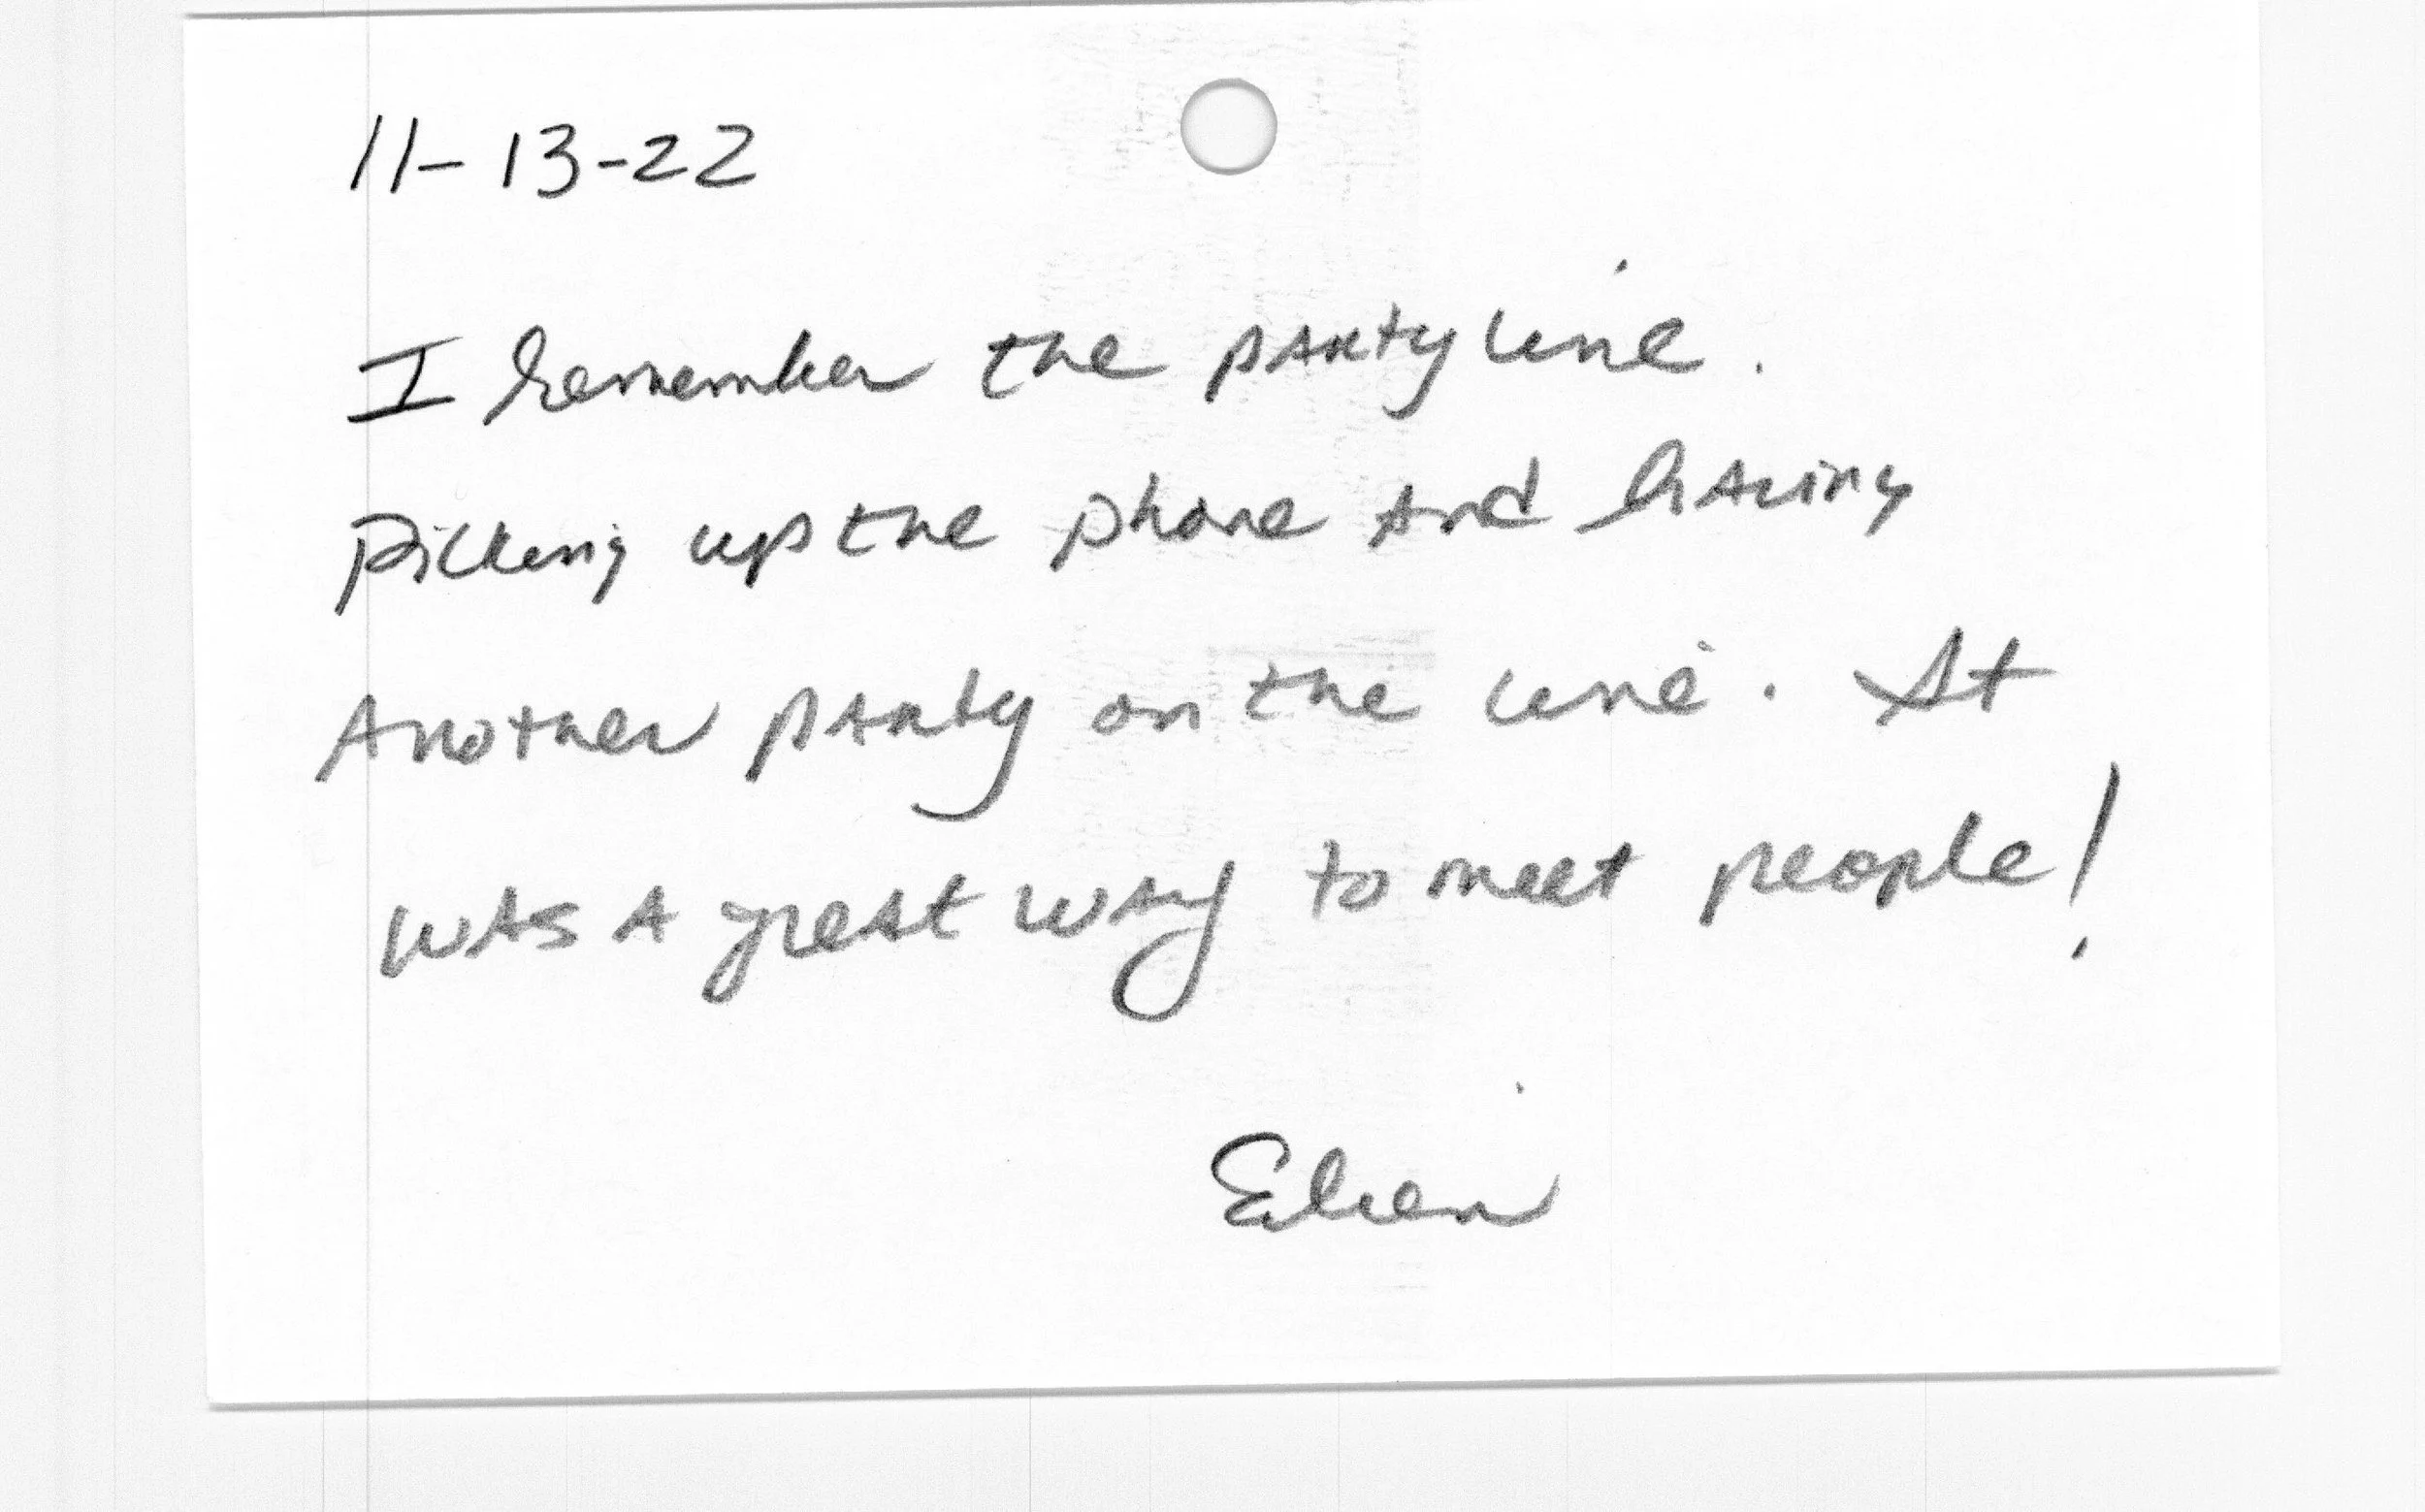 11-13-22
I remember the party line.
Picking up the phone and having
another party on the line. It
was a great way to meet people!